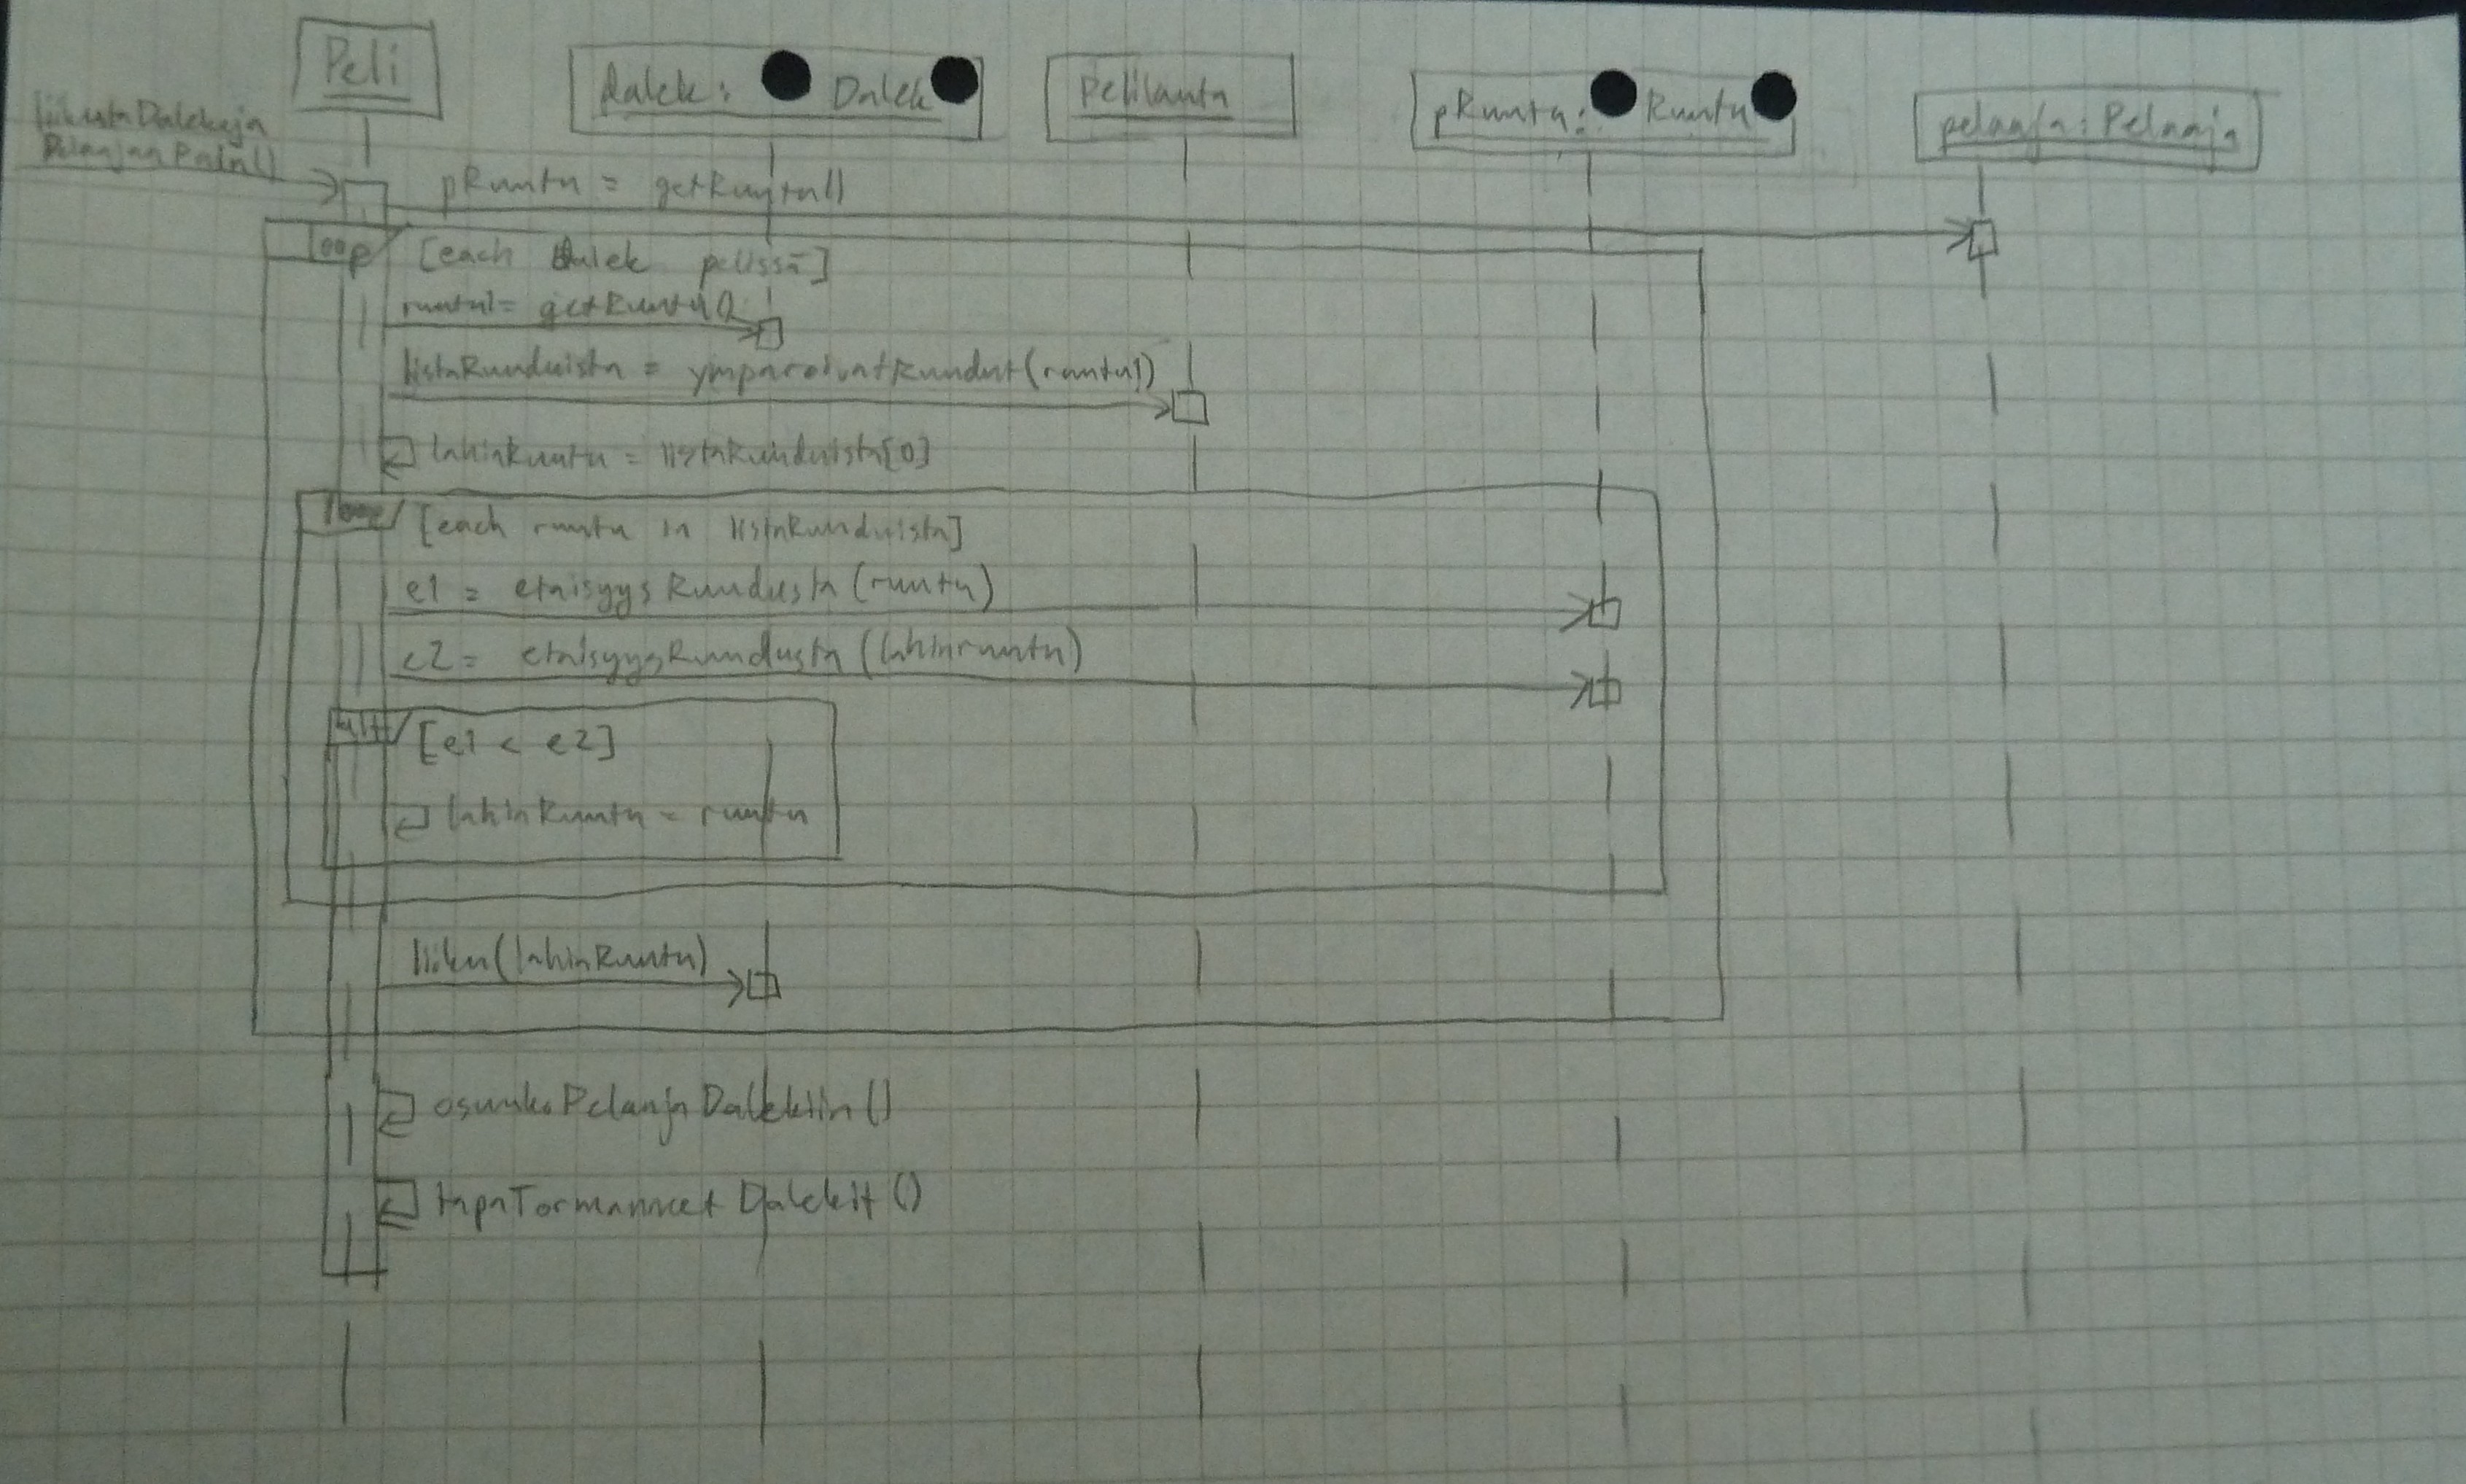 Peli
dalek: Dalek
Pelilauta
pRuutu: Ruutu
pelaaja: Pelaaja
liikutaDalekeja
PelaajanPerään()
pRuutu = getRuutu()
loop [each Dalek pelissä]
ruutu1= getRuutu()
listaRuuduista = ymparoivatRuudut(ruutu1)
lahinRuutu = listaRuuduista[0]
loop [each ruutu in listaRuuduista]
e1 = etaisyysRuudusta(ruutu)
e2 = etaisyysRuudusta(lahinruutu)
alt [e1 < e2]
lahinRuutu = ruutu
liiku(lahinRuutu)
osuukoPelaajaDalekiin()
tapaTormanneetDalekit()